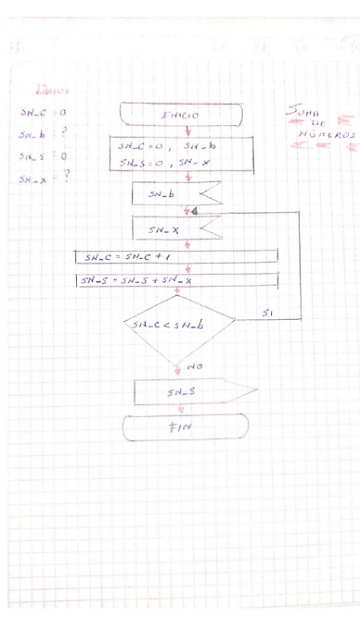 Datos
SN_C = 0
SN_b = ?
SN_S = 0
SN_x = ?
SUMA
DE
NÚMEROS
INICIO
SN_C = 0 , SN_b
SN_S = 0 , SN_X
SN_b
SN_X
SN_C = SN_C + 1
SN_S = SN_S + SN_X
SN_C < SN_b
SI
NO
SN_S
FIN